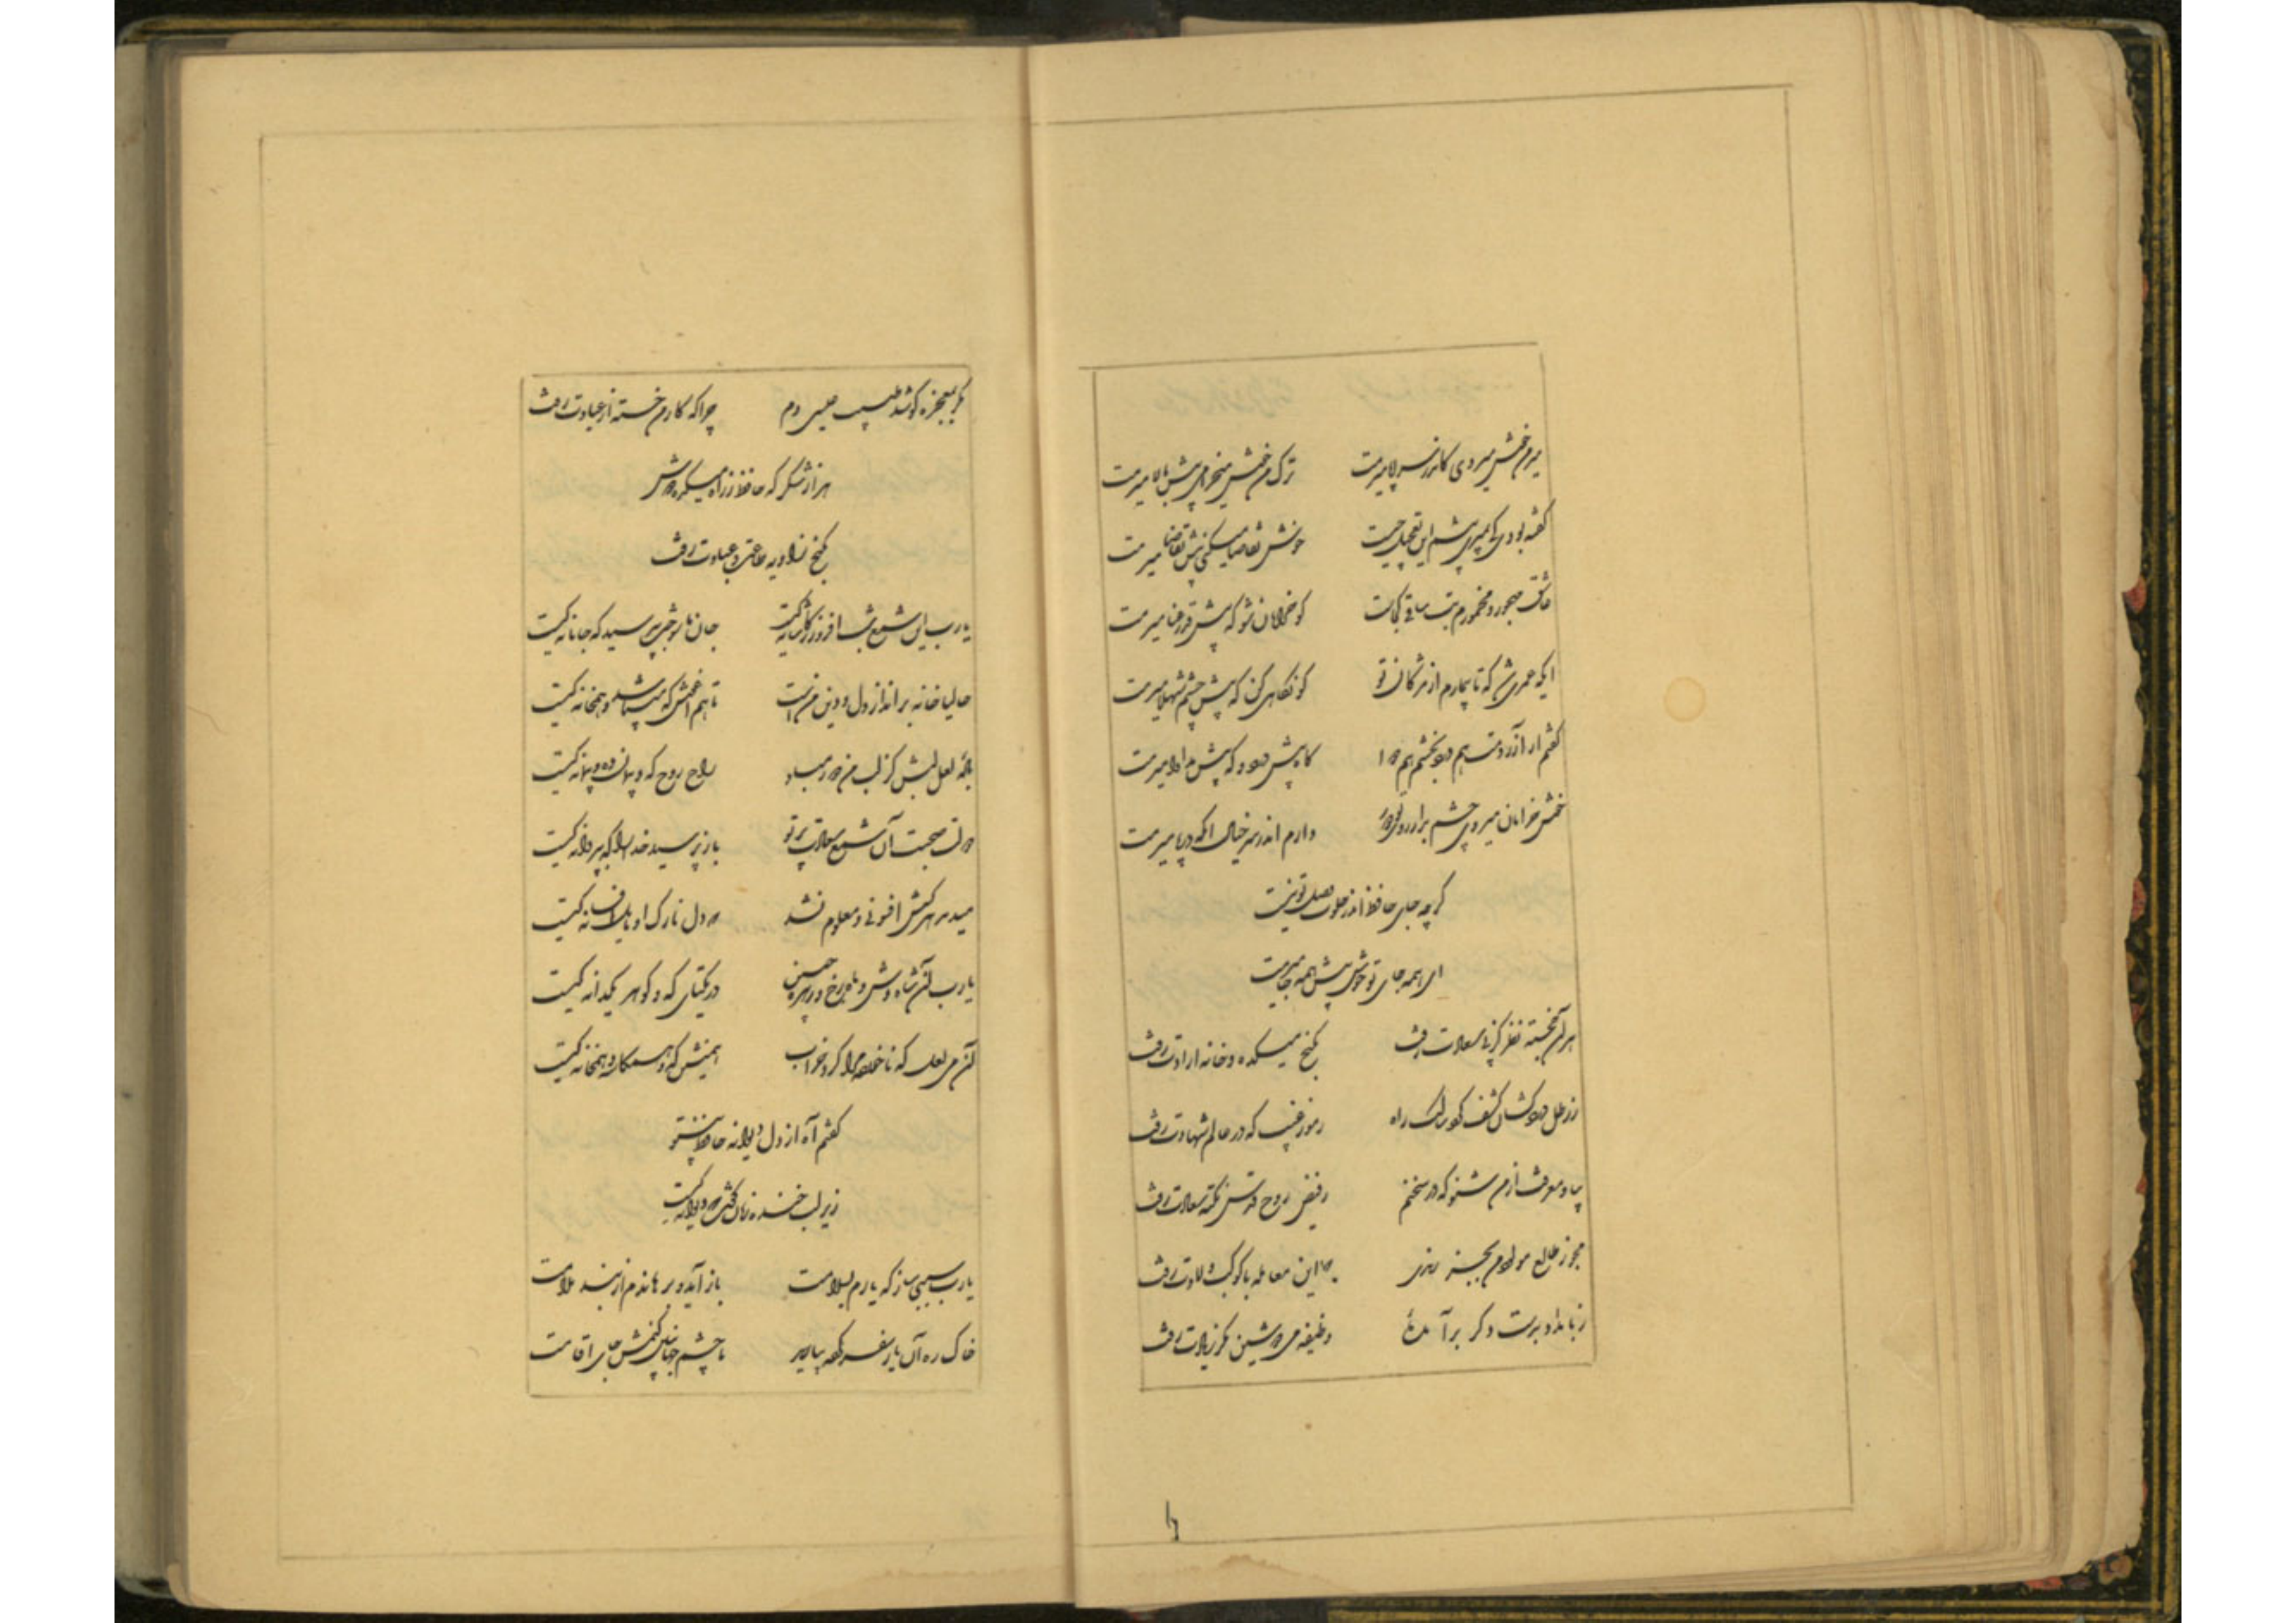 میر من خوش میروی کاندر سر و پا میرمت ترک من خوش میخرامی پیش بالا میرمت
گفته بودی کی بمیری پیشم این تعجیل چیست خوش تقاضا میکنی پیش تقاضا میرمت
عاشق و مهجور و مخمورم بت ساقی کجاست کو خرامان شو که پیش قد رعنا میرمت
ایکه عمری شد که تا بیمارم از مژگان تو کو نگاهی کن که پیش چشم شهلا میرمت
گفته‌ام از آن درد بخشم هم دوا گاه پیش درد و گه پیش مداوا میرمت
خوش خرامان میروی چشم بد از روی تو دور دارم اندر سر خیال آنکه در پا میرمت
گرچه جای حافظ اندر خلوت وصل تو نیست
ای همه جای تو خوش پیش همه جا میرمت
هر آن خجسته نظر کز پی سعادت رفت بکنج میکده و خانه ارادت رفت
ز رطل درد کشان کشف کرد سالک راه رموز غیب که در عالم شهادت رفت
بیا و معرفت از من شنو که در سخنم ز فیض روح قدس نکته سعادت رفت
مجو ز طالع مولود من بجز رندی که این معامله با کوکب ولادت رفت
ز بامداد بدست دگر برآمده وظیفه می دوشین مگر زیادت رفت
مگر بمعجزه کوشد طبیب عیسی دم چرا که کار من خسته از عیادت رفت
هزار شکر که حافظ ز راه میکده دوش
بکنج زاویه طاعت و عبادت رفت
یارب این شمع شب افروز ز کاشانه کیست جان ما سوخت بپرسید که جانانه کیست
حالیا خانه برانداز دل و دین من است تا هم آغوش که میباشد و همخانه کیست
باده لعل لبش کز لب من دور مباد راح روح که و پیمان ده و پیمانه کیست
دولت صحبت آن شمع سعادت پرتو باز پرسید خدا را که بپروانه کیست
میدمد هر کسش افسونی و معلوم نشد که دل نازک او مایل افسانه کیست
یارب آن شاه وش و ماه رخ و زهره جبین در یکتای که و گوهر یکدانه کیست
آن می لعل که ناخورده مرا کرد خراب همنشین که و همکاسه و همخانه کیست
گفتم آه از دل دیوانه حافظ بی تو
زیر لب خنده زنان گفت که دیوانه کیست
یارب سببی ساز که یارم بسلامت باز آید و برهاندم از بند ملامت
خاک ره آن یار سفر کرده بیارید تا چشم جهان بین کنمش جای اقامت